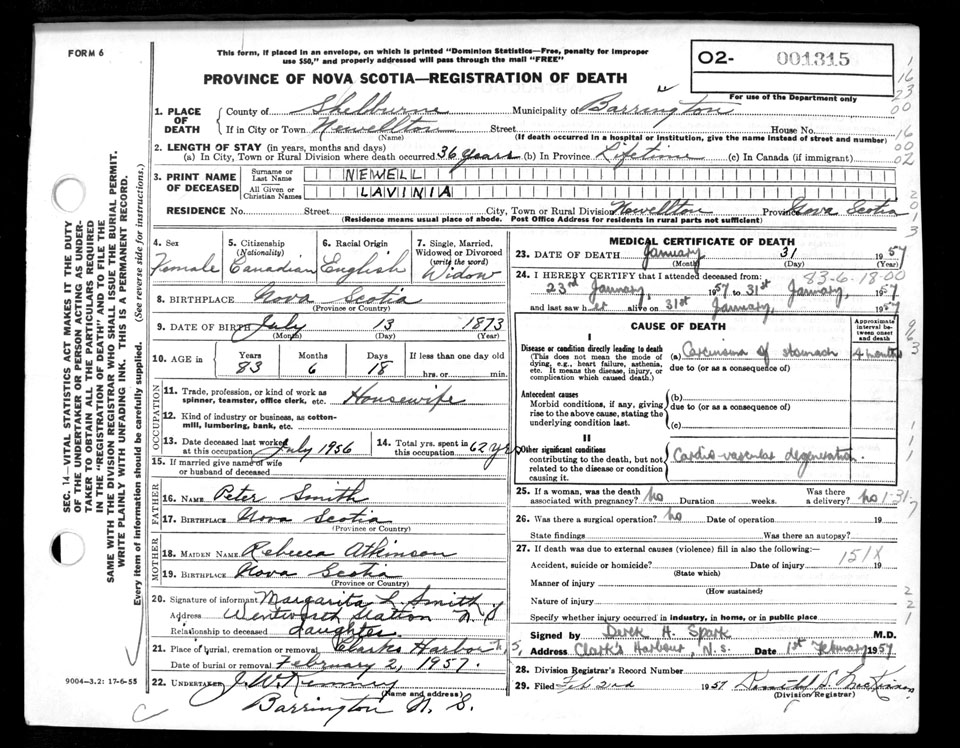 FORM 6
This form, if placed in an envelope, on which is printed "Dominion Statistics—Free, penalty for improper
use $50," and properly addressed will pass through the mail "FREE"
PROVINCE OF NOVA SCOTIA—REGISTRATION OF DEATH
02- 001315
For use of the Department only
1. PLACE OF DEATH
County of Shelburne Municipality of Barrington
If in City or Town Newellton Street House No.
(Name) (If death occurred in a hospital or institution, give the name instead of street and number)
2. LENGTH OF STAY (in years, months and days)
(a) In City, Town or Rural Division where death occurred 36 years (b) In Province Lifetime (c) In Canada (if immigrant)
3. PRINT NAME OF DECEASED
Surname or Last Name NEWELL
All Given or Christian Names LAVINIA
RESIDENCE No. Street City, Town or Rural Division Newellton Province Nova Scotia
(Residence means usual place of abode. Post Office Address for residents in rural parts not sufficient)
4. Sex Female
5. Citizenship (Nationality) Canadian
6. Racial Origin English
7. Single, Married, Widowed or Divorced (write the word) Widow
8. BIRTHPLACE Nova Scotia
(Province or Country)
9. DATE OF BIRTH July 13 1873
(Month) (Day) (Year)
10. AGE in Years 83 Months 6 Days 18 If less than one day old hrs. or min.
OCCUPATION
11. Trade, profession, or kind of work as spinner, teamster, office clerk, etc. Housewife
12. Kind of industry or business, as cotton-mill, lumbering, bank, etc.
13. Date deceased last worked at this occupation July 1956
14. Total yrs. spent in this occupation 62 yrs
15. If married give name of wife or husband of deceased
FATHER
16. NAME Peter Smith
17. BIRTHPLACE Nova Scotia
(Province or Country)
MOTHER
18. MAIDEN NAME Rebecca Atkinson
19. BIRTHPLACE Nova Scotia
(Province or Country)
20. Signature of informant Margarita L. Smith
Address Wentworth Station N.S
Relationship to deceased daughter
21. Place of burial, cremation or removal Clarks Harbor N.S.
Date of burial or removal February 2, 1957.
22. UNDERTAKER J. W. Kenney
(Name and address)
Barrington N. S.
9004—3.2: 17-6-55
SEC. 14—VITAL STATISTICS ACT MAKES IT THE DUTY
OF THE UNDERTAKER OR PERSON ACTING AS UNDER-
TAKER TO OBTAIN ALL THE PARTICULARS REQUIRED
IN THE "REGISTRATION OF DEATH" AND TO FILE THE
SAME WITH THE DIVISION REGISTRAR WHO SHALL ISSUE THE BURIAL PERMIT.
WRITE PLAINLY WITH UNFADING INK. THIS IS A PERMANENT RECORD.
Every item of information should be carefully supplied. (See reverse side for instructions.)
MEDICAL CERTIFICATE OF DEATH
23. DATE OF DEATH January 31 1957
(Month) (Day) (Year)
24. I HEREBY CERTIFY that I attended deceased from: 83-6-18-00
23rd January, 1957 to 31st January, 1957
and last saw her alive on 31st January, 1957
CAUSE OF DEATH
Approximate interval between onset and death
I
Disease or condition directly leading to death
(This does not mean the mode of dying, e.g., heart failure, asthenia, etc. It means the disease, injury, or complication which caused death.)
(a) Carcinoma of stomach 4 months
due to (or as a consequence of)
Antecedent causes
Morbid conditions, if any, giving rise to the above cause, stating the underlying condition last.
(b)
due to (or as a consequence of)
(c)
II
Other significant conditions
contributing to the death, but not related to the disease or condition causing it.
Cardio-vascular degeneration.
25. If a woman, was the death associated with pregnancy? no Duration weeks. Was there a delivery? no
1-31-7
26. Was there a surgical operation? no Date of operation 19
State findings Was there an autopsy?
27. If death was due to external causes (violence) fill in also the following:—
151X
Accident, suicide or homicide? Date of injury 19
(State which)
Manner of injury
(How sustained)
Nature of injury
Specify whether injury occurred in industry, in home, or in public place
Signed by Derek H. Spark M.D.
Address Clark's Harbour, N.S. Date 1st February 1957
28. Division Registrar's Record Number
29. Filed Feb 2nd 1957
(Division Registrar)